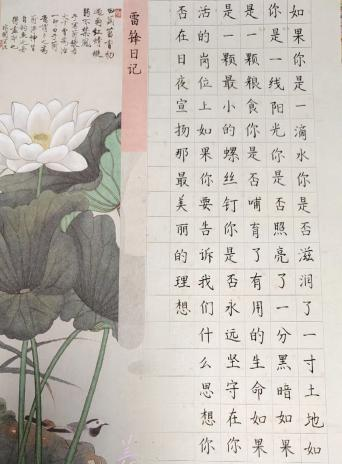 如果你是一滴水你是否滋润了一寸土地如
你是一线阳光你是否照亮了一分黑暗如果
是一颗粮食你是否哺育了有用的生命如果
是一颗最小的螺丝钉你是否永远坚守在你
活的岗位上如果你要告诉我们什么思想你
否在日夜宣扬那最美丽的理想
雷锋日记